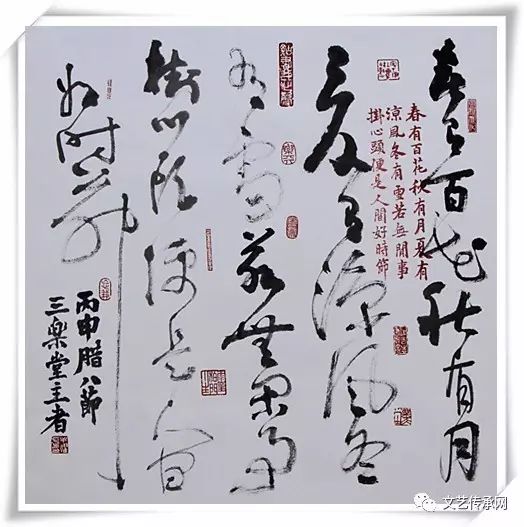 春有百花秋有月
春有百花秋有月夏有
涼風冬有雪若無閒事
掛心頭便是人間好時節
夏有涼風冬
有雪若無閒事
掛心頭便是人間
好時節
丙申腊八節
三楽堂主者
文艺传承网